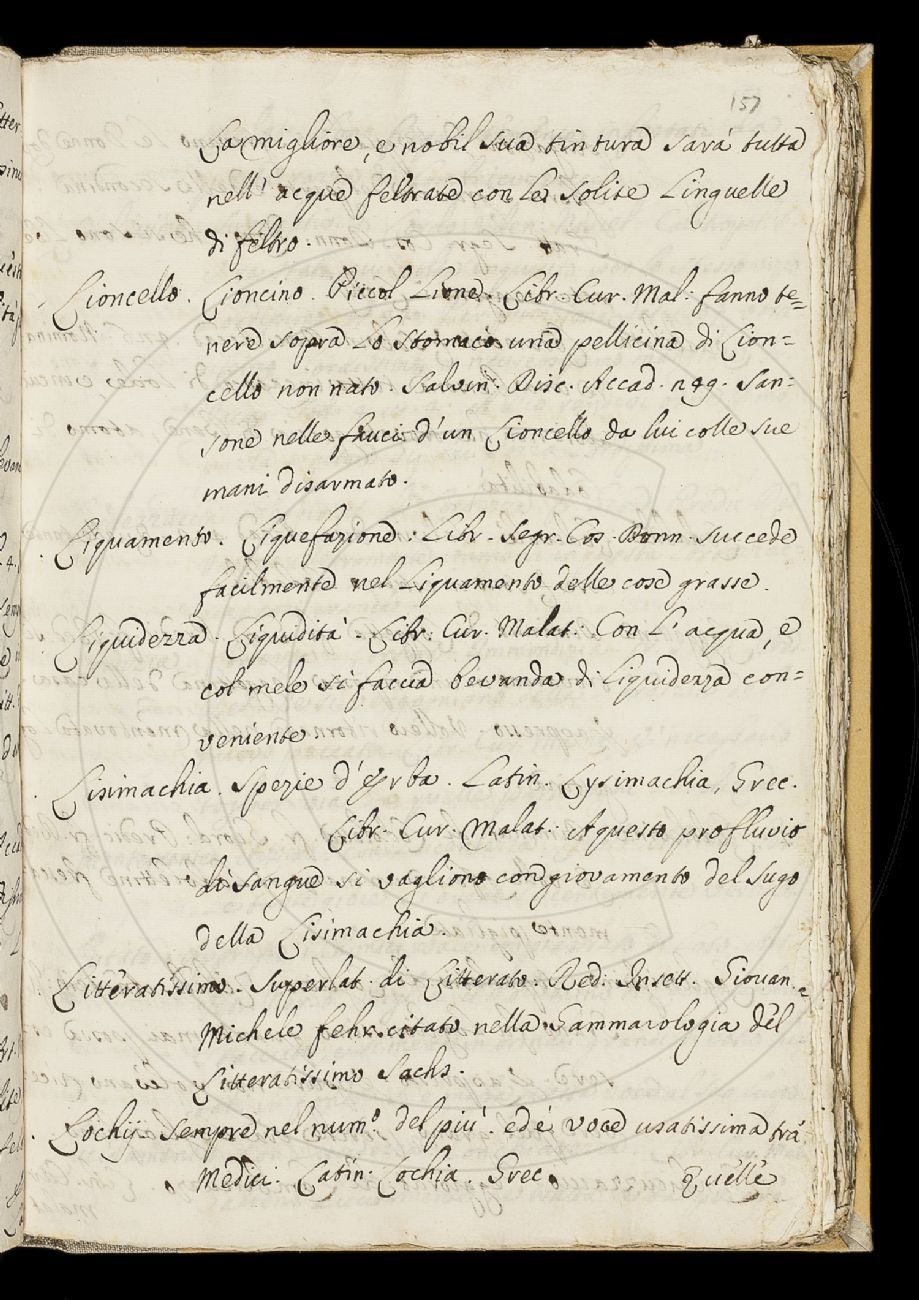 157
La migliore, e nobil sua tintura sará tutta
nell' acque feltrate con le solite Linguelle
di feltro.
Lioncello. Lioncino. Piccol Lione. Libr. Cur. Mal. fanno te=
nere sopra Lo stomaco una pellicina di Lion=
cello non nato. Salvin. Disc. Accad. n49. San=
sone nelle fauci d'un Lioncello da lui colle sue
mani disarmato.
Liquamento. Liquefazione: Libr. Segr. Cos. Donn. succede
facilmente nel Liquamento delle cose grasse.
Liquidezza. Liquidità. Libr. Cur. Malat. Con L' acqua, e
col mele si faccia bevanda di Liquidezza con=
veniente
Lisimachia. Spezie d'Erba. Latin. Lysimachia, Grec.
Libr. Cur. Malat. Aquesto profluvio
di sangue si vagliono con giovamento del sugo
della Lisimachia.
Litteratissimo. Superlat. di Litterato. Red. Insett. Giovan=
Michele fehr citato nella Gammarologia del
Litteratissimo Sachs.
Lochij sempre nel num.º del piú. ed é voce usatissima trá
Medici. Latin. Lochia. Grec.
Quelle